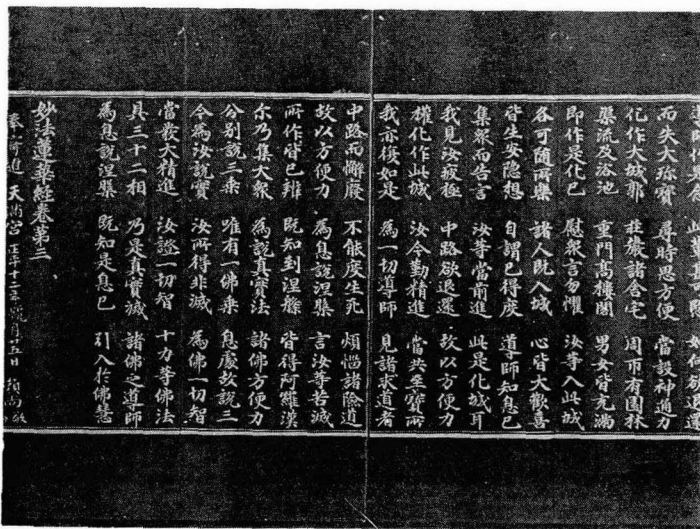 而失大珎寶 尋時思方便 當設神通力
化作大城郭 莊嚴諸舍宅 周帀有園林
渠流及浴池 重門高樓閣 男女皆充滿
即作是化已 慰衆言勿懼 汝等入此城
各可隨所樂 諸人既入城 心皆大歡喜
皆生安隱想 自謂已得度 導師知息已
集衆而告言 汝等當前進 此是化城耳
我見汝疲極 中路欲退還 故以方便力
權化作此城 汝今勤精進 當共至寶所
我亦復如是 為一切導師 見諸求道者
中路而懈廢 不能度生死 煩惱諸險道
故以方便力 為息說涅槃 言汝等苦滅
所作皆已辨 既知到涅槃 皆得阿羅漢
尓乃集大衆 為說真實法 諸佛方便力
分別說三乘 唯有一佛乘 息處故說三
今為汝說實 汝所得非滅 為佛一切智
當發大精進 汝證一切智 十力等佛法
具三十二相 乃是真實滅 諸佛之導師
為息說涅槃 既知是息已 引入於佛慧
妙法蓮華経卷第三
奉寄進 天満宮 正平十二年 月廿五日 頼尚敬